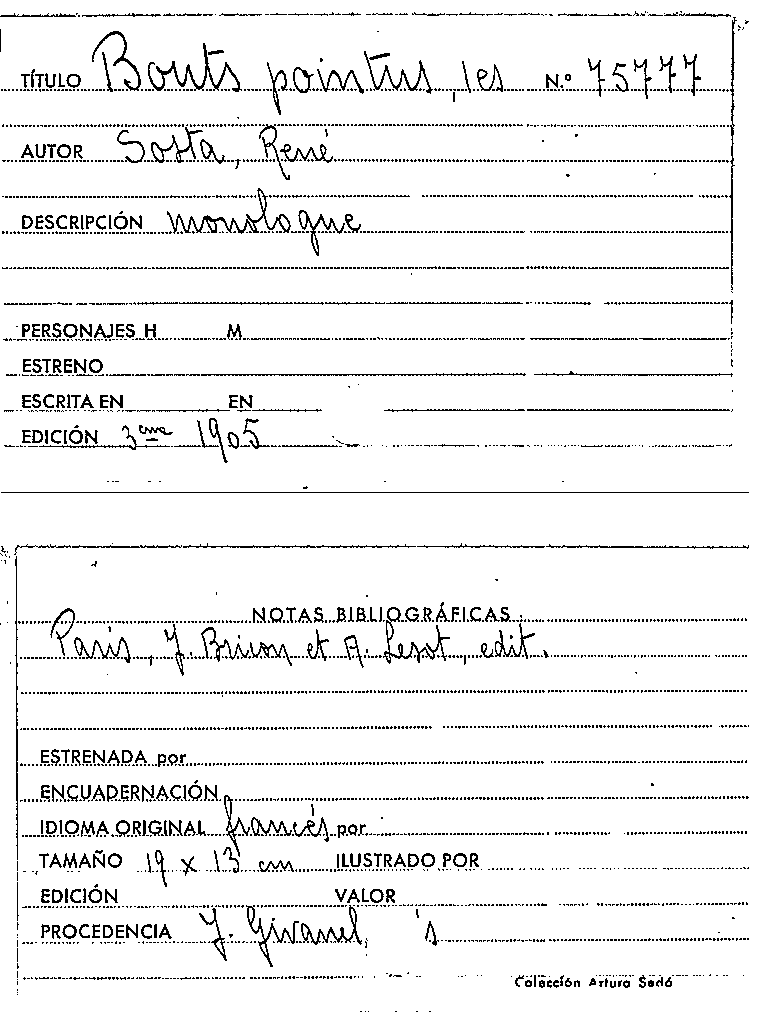 TÍTULO Bouts pointus, les N.º 75777
AUTOR Sosta, René
DESCRIPCIÓN monologue
PERSONAJES H M
ESTRENO
ESCRITA EN EN
EDICIÓN 3eme 1905
NOTAS BIBLIOGRÁFICAS
Paris, J. Bricon et A. Lesot, edit.
ESTRENADA por
ENCUADERNACIÓN
IDIOMA ORIGINAL francés por
TAMAÑO 19 x 13 cm ILUSTRADO POR
EDICIÓN VALOR
PROCEDENCIA J. Givanel, 's
Colección Arturo Sedó